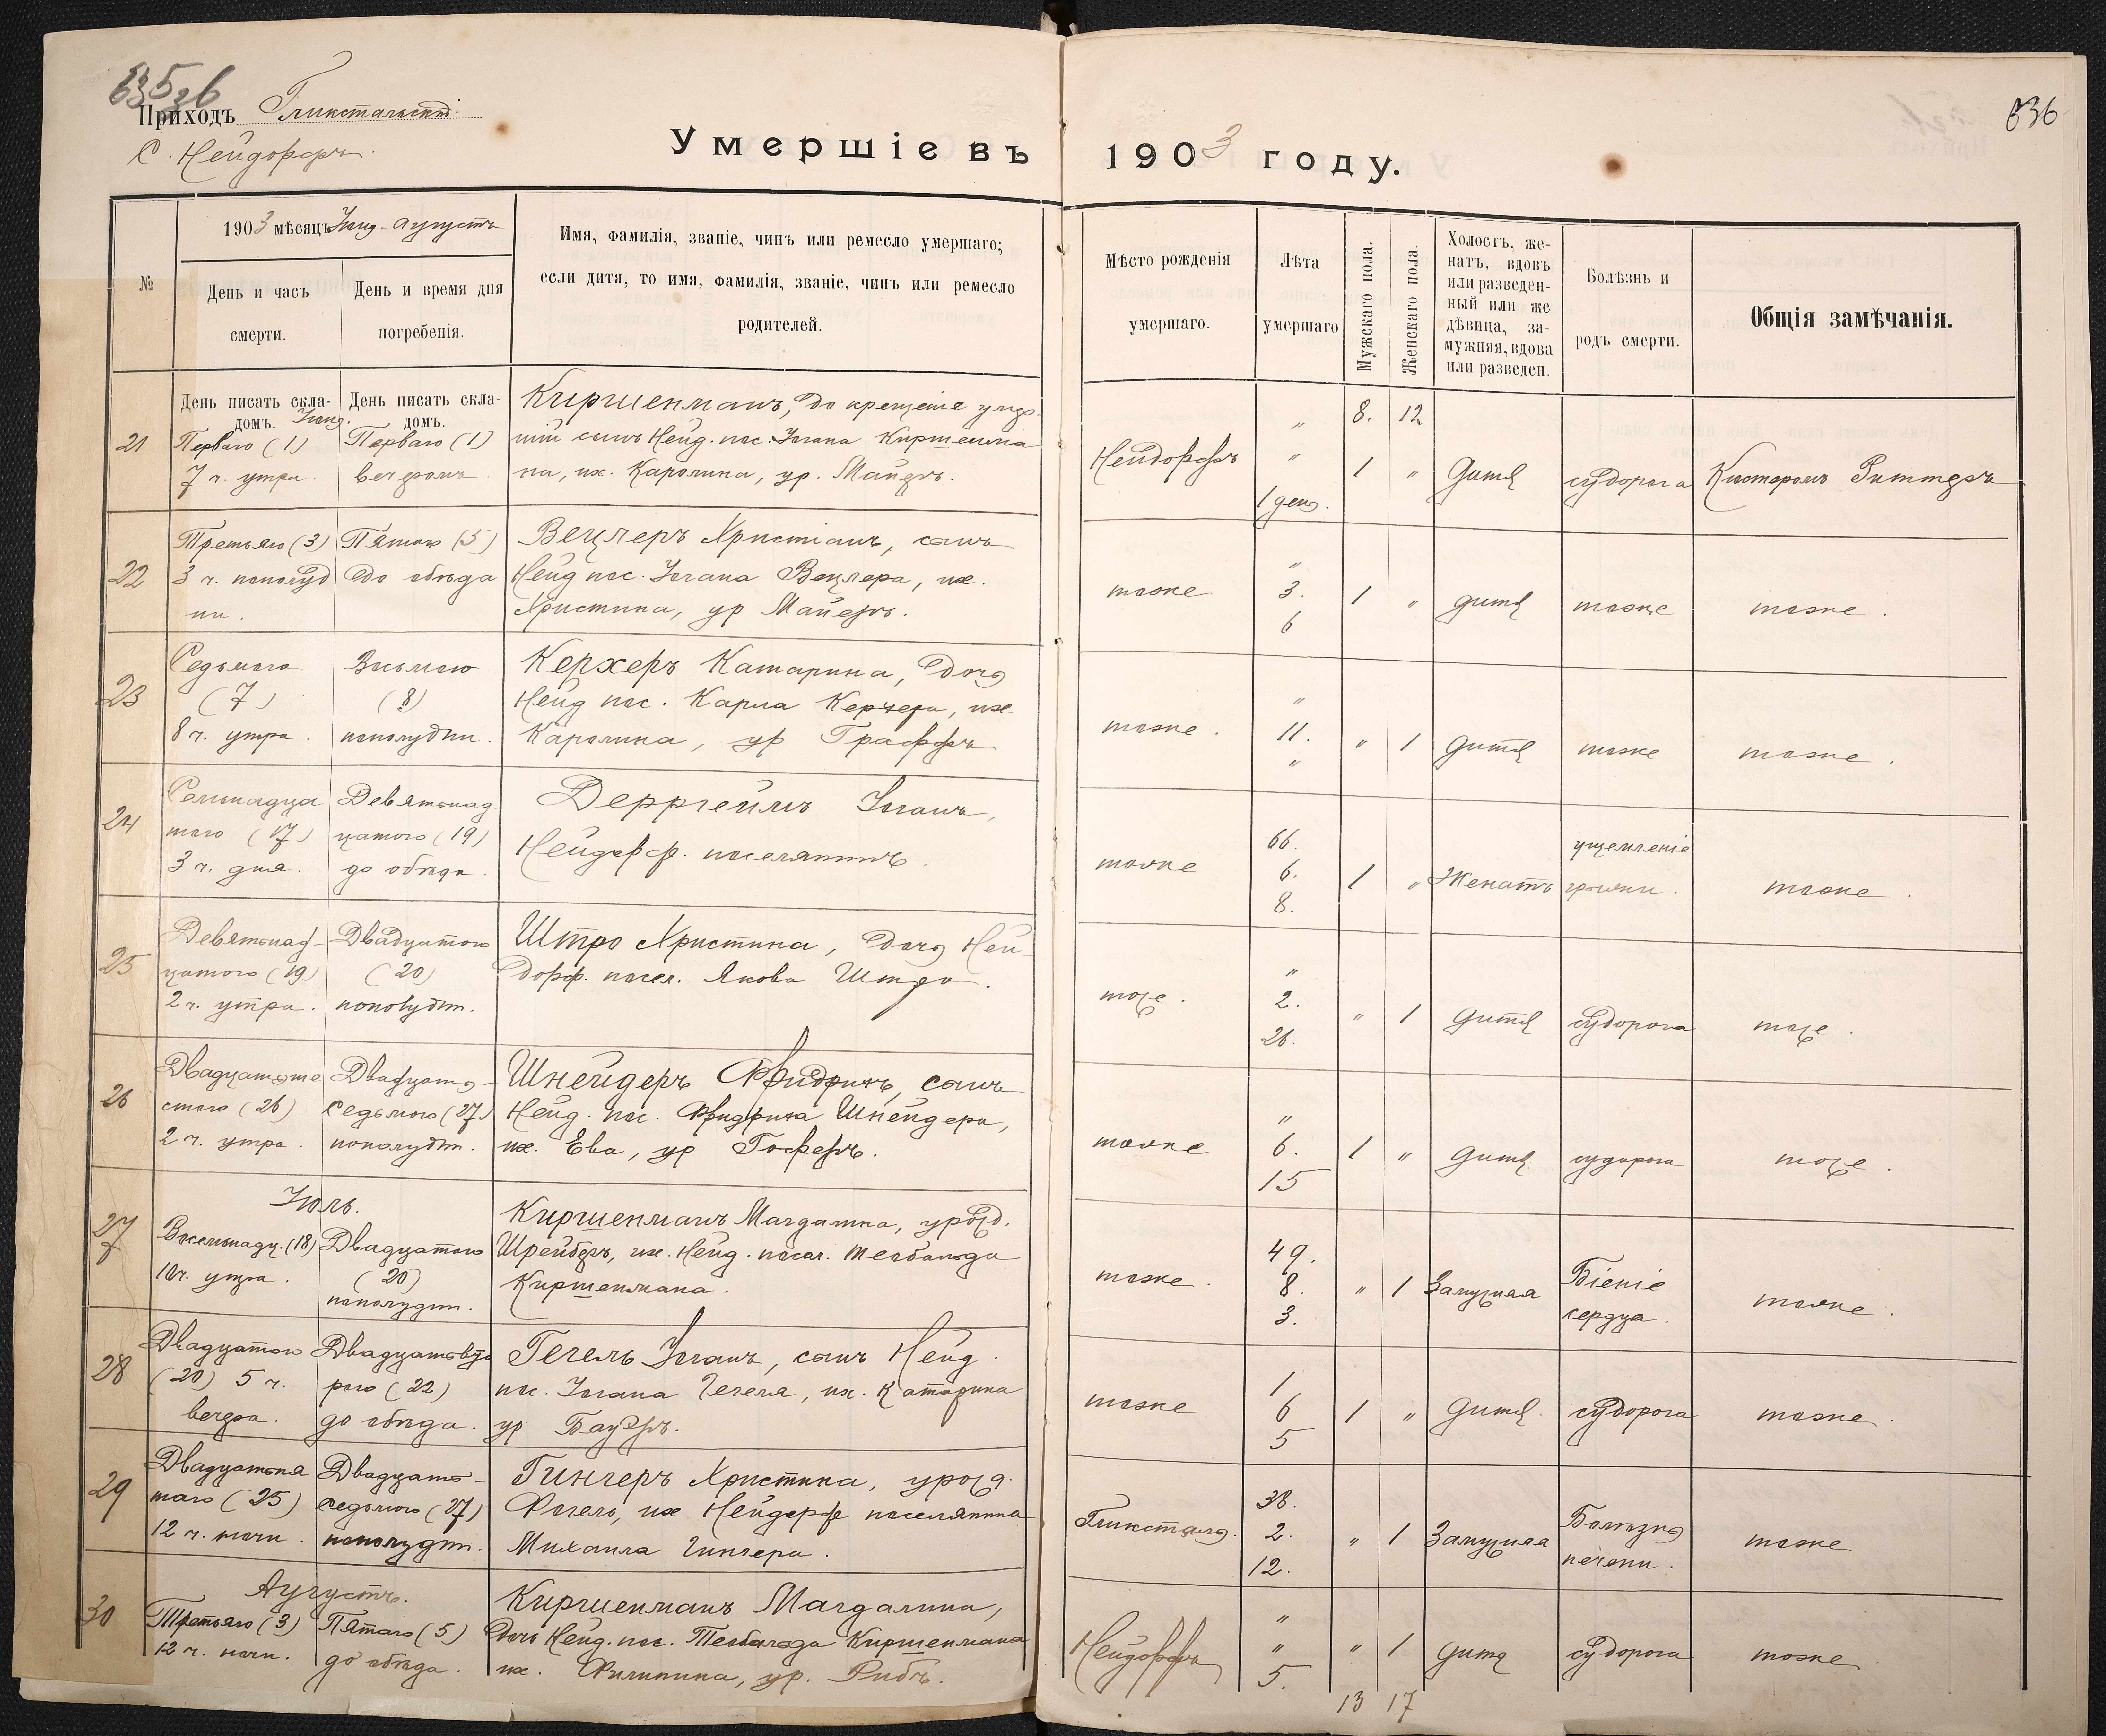 635 зв
Приходъ Гликстальскій
С. Нейдорфъ.
Умершіе въ 1903 году.
636
№
1903 мѣсяцъ Іюнь - Августъ
День и часъ смерти.
День и время дня погребенія.
Имя, фамилія, званіе, чинъ или ремесло умершаго;
если дитя, то имя, фамилія, званіе, чинъ или ремесло
родителей.
Мѣсто рожденія
умершаго.
Лѣта
умершаго
Мужскаго пола.
Женскаго пола.
Холостъ, же-
натъ, вдовъ
или разведен-
ный или же
дѣвица, за-
мужняя, вдова
или разведен.
Болѣзнь и
родъ смерти.
Общія замѣчанія.
День писать скла-
домъ. Іюнь.
День писать скла-
домъ.
8. 12
21
Перваго (1)
7 ч. утра.
Перваго (1)
вечеромъ
Киршенманъ, до крещенія умер-
шій сынъ Нейд. пос. Іогана Киршенма
на, их. Каролина, ур. Майеръ.
Нейдорфъ
"
"
1 день.
1 "
Дитя
судорога
Кистеромъ Риттеръ
22
Третьяго (3)
3 ч. пополуд
ни.
Пятаго (5)
до обѣда
Вецлеръ Христіанъ, сынъ
Нейд пос. Іогана Вецлера, их.
Христина, ур Майеръ.
тоже
"
3.
6
1 "
дитя
тоже
тоже.
23
Седьмого
(7)
8 ч. утра.
Восьмого
(8)
пополудни.
Керхеръ Катарина, дочь
Нейд пос. Карла Керхера, их
Каролина, ур Граффъ
тоже.
"
11.
"
" 1
дитя
тоже
тоже.
24
Семнадца
таго (17)
3 ч. дня.
Девятнад-
цатого (19)
до обѣда.
Дерргеймъ Іоганъ,
Нейдорф. поселянинъ.
тоже
66.
6.
8.
1 "
Женатъ
ущемленіе
грыжи.
тоже.
25
Девятнад-
цатого (19)
2 ч. утра.
Двадцатого
(20)
пополудни.
Штро Христина, дочь Ней-
дорф. посел. Якова Штро.
тоже.
"
2.
26.
" 1
дитя
судорога
тоже.
26
Двадцатьше
стого (26)
2 ч. утра.
Двадцать-
седьмого (27)
пополудни.
Шнейдеръ Фридрихъ, сынъ
Нейд. пос. Фридриха Шнейдера,
их. Ева, ур Гоферъ.
тоже
"
6.
15
1 "
дитя
судорога
тоже.
27
Іюль.
Восемнадц. (18)
10 ч. утра.
Двадцатого
(20)
пополудни.
Киршенманъ Магдалина, урожд.
Шрейберъ, их. Нейд. посел. Теобальда
Киршенмана.
тоже.
49.
8.
3.
" 1
Замужняя
Біеніе
сердца.
тоже.
28
Двадцатого
(20) 5 ч.
вечера.
Двадцатьвто
рого (22)
до обѣда.
Гегель Іоганъ, сынъ Нейд.
пос. Іогана Гегеля, их. Катарина
ур Бауеръ.
тоже
1
6
5
1 "
дитя.
судорога
тоже.
29
Двадцатьпя
таго (25)
12 ч. ночи.
Двадцать-
седьмого (27)
пополудни.
Гингеръ Христина, урожд.
Фогель, их Нейдорф поселянина
Михаила Гингера.
Гликсталь.
38.
2.
12.
" 1
Замужняя
Болѣзнь
печени.
тоже
30
Августъ.
Третьяго (3)
12 ч. ночи.
Пятаго (5)
до обѣда.
Киршенманъ Магдалина,
дочь Нейд. пос. Теобальда Киршенмана
их. Филипина, ур. Рибъ.
Нейдорфъ
"
"
5.
" 1
дитя
судорога
тоже.
13 17